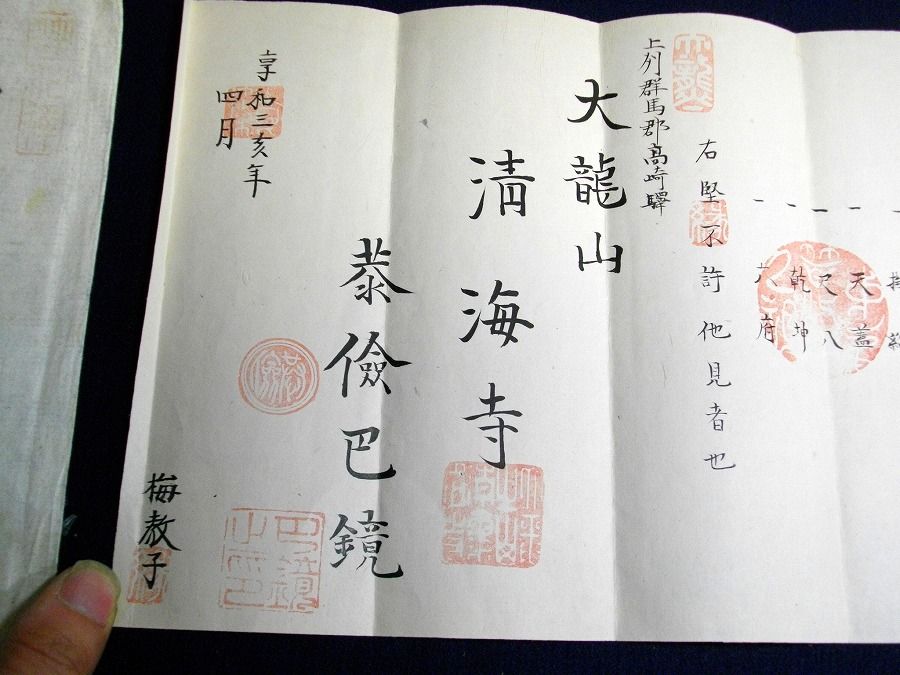 一 天蓋
一 尺八
一 乾坤
一 六府
右堅不許他見者也
上列群馬郡高崎驛
大龍山
清海寺
恭儉巴鏡
享和三亥年
四月
梅敖子